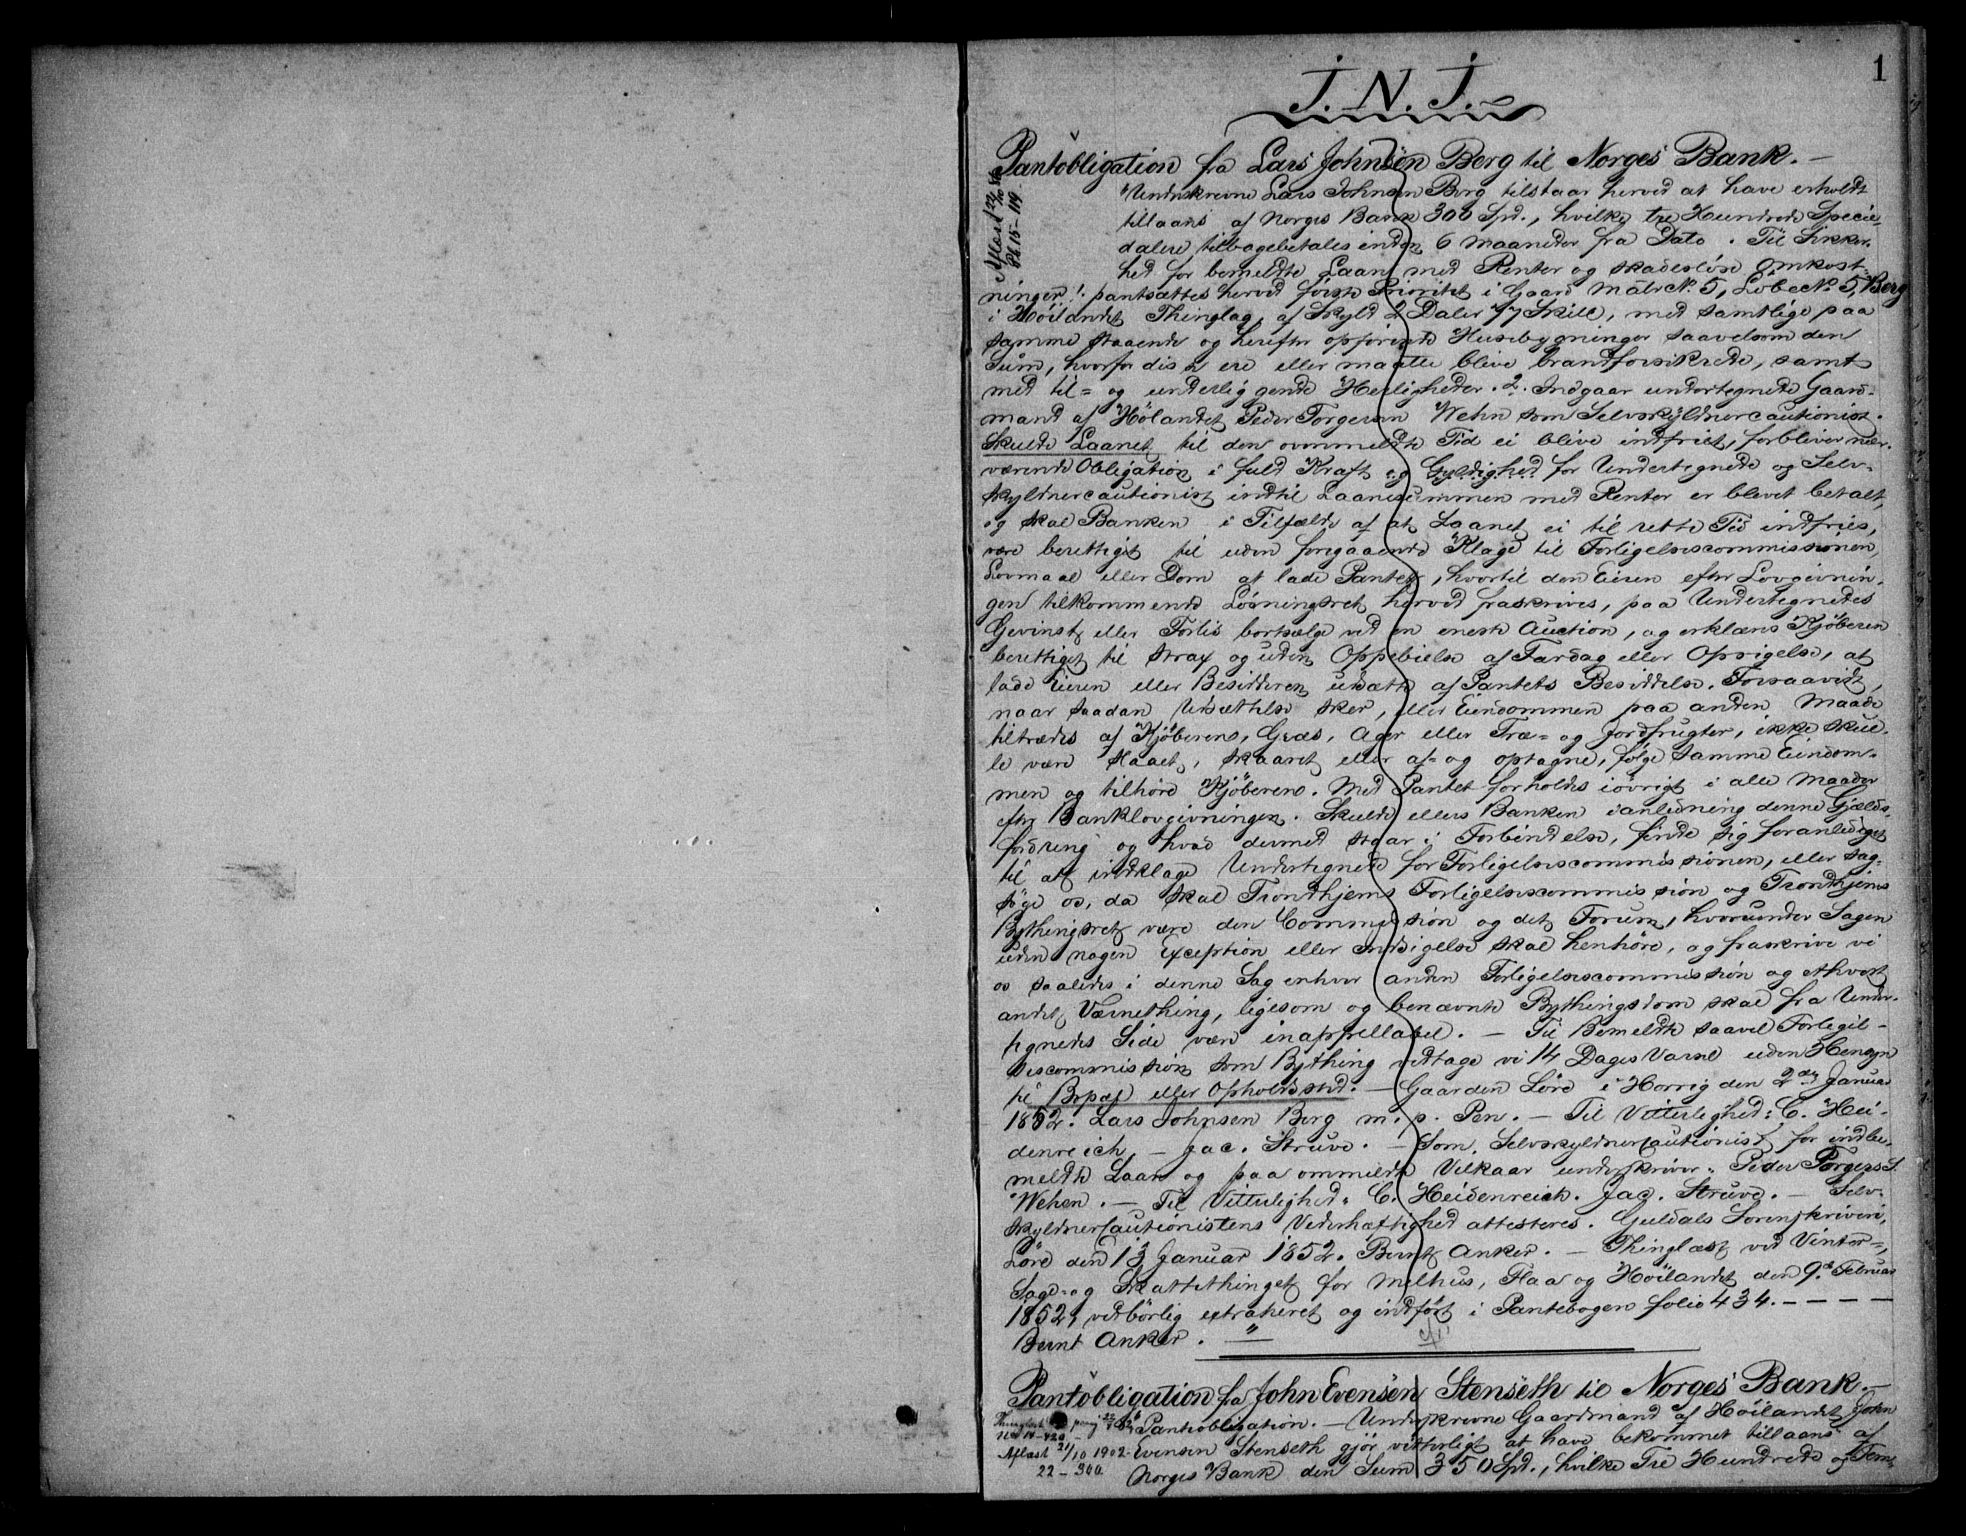 1
J. N. J.
Pantobligation fra Lars Johnsen Berg til Norges Bank. —
Aflæst
Pb 15-119
Underskrevne Lars Johnsen Berg tilstaar herved at have erholdt
tillaans af Norges Bank 300 Spd., hvilke tre Hundrede Specie-
dalere tilbagebetales inden 6 Maaneder fra Dato. Til Sikker-
hed for bemeldte Laan med Renter og skadesløse Omkost-
ninger 1. pantsættes herved første Prioritet i Gaard Matr. No. 5, Løbe No. 5, Berg
i Høilandet Thinglag, af Skyld 2 Daler 77 Skill, med samtlige paa
samme staaende og herefter opførende Husebygninger saavelsom den
Sum, hvorfor disse ere eller maatte blive brandforsikrede, samt
med til- og underliggende Herligheder. 2. Indgaar undertegnede Gaard-
mand af Hølandet Peder Torgersen Wehn som Selvskyldnercautionist.
Skulde Laanet til den ovenmeldte Tid ei blive indfriet, forbliver nær-
værende Obligation i fuld Kraft og Gyldighed for Undertegnede og Selv-
skyldnercautionist indtil Laanesummen med Renter er blevet betalt,
og skal Banken i Tilfælde af at Laanet ei til rette Tid indfries,
være berettiget til uden foregaaende Klage til Forligelsescommissionen,
Lovmaal eller Dom at lade Pantet, hvortil den Eieren efter Lovgivnin-
gen tilkommende Løsningsret herved fraskrives, paa Undertegnedes
Gevinst eller Forlis bortsælge ved en eneste Auction, og erklæres Kjøberen
berettiget til strax og uden Oppebielse af Fardag eller Opsigelse, at
lade Eieren eller Besidderen udsætte af Pantets Besiddelse. Forsaavidt,
naar saadan Udsættelse sker, eller Eiendommen paa anden Maade
tiltrædes af Kjøberen, Græs, Ager eller Træ- og Jordfrugter, ikke skul-
le være slaaet, skaaret eller af- og optagne, følge samme Eiendom-
men og tilhøre Kjøberen. Med Pantet forholdes iøvrigt i alle Maader
efter Banklovgivningen. Skulde ellers Banken i anledning denne Gjælds-
fordring og hvad dermed staar i Forbindelse, finde sig foranlediget
til at indklage Undertegnede for Forligelsescommissionen, eller sag-
søge os, da skal Trondhjems Forligelsescommission og Trondhjems
Bythingsret være den Commission og det Forum, hvorunder Sagen
uden nogen Exception eller Indsigelse skal henhøre, og fraskrive vi
os saaledes i denne Sag enhver anden Forligelsescommission og ethvert
andet Værnething, ligesom og benævnte Bythingsdom skal fra Under-
tegnedes Side være inappellabel. — Til Bemeldte saavel Forligel-
sescommission som Bything vedtage vi 14 Dages Varsel uden Hensyn
til Bopæl eller Opholdssted. — Gaarden Løre i Horrig den 2den Januar
1852. Lars Johnsen Berg m. p. Pen. — Til Vitterlighed: C. Hei-
denreich — Jac. Struve. — Som Selvskyldnercautionist for indbe-
meldte Laan og paa ommeldte Vilkaar underskriver: Peder Torgers S.
Wehen. — Til Vitterlighed: C. Heidenreich. Jac. Struve. — Selv-
skyldnercautionistens Vederhæftighed attesteres. Guldals Sorenskriveri,
Løre den 13 Januar 1852. Bernt Anker. — Thinglæst ved Vinter-,
Sage- og Skattethinget for Melhus, Flaa og Høilandet den 9de Februar
1852, vedbørlig extraheret og indført i Pantebogen folio 434. — — — —
Bernt Anker. "
Pantobligation fra John Evensen Stenseth til Norges Bank. —
Pantobligation. — Underskrevne Gaardmand af Høilandet John
Aflæst 21/10 1902. Evensen Stenseth gjør vitterligt at have bekommet tillaans af
22 - 300
Norges Bank den Sum 350 Spd., hvilke Tre Hundrede og Fem-